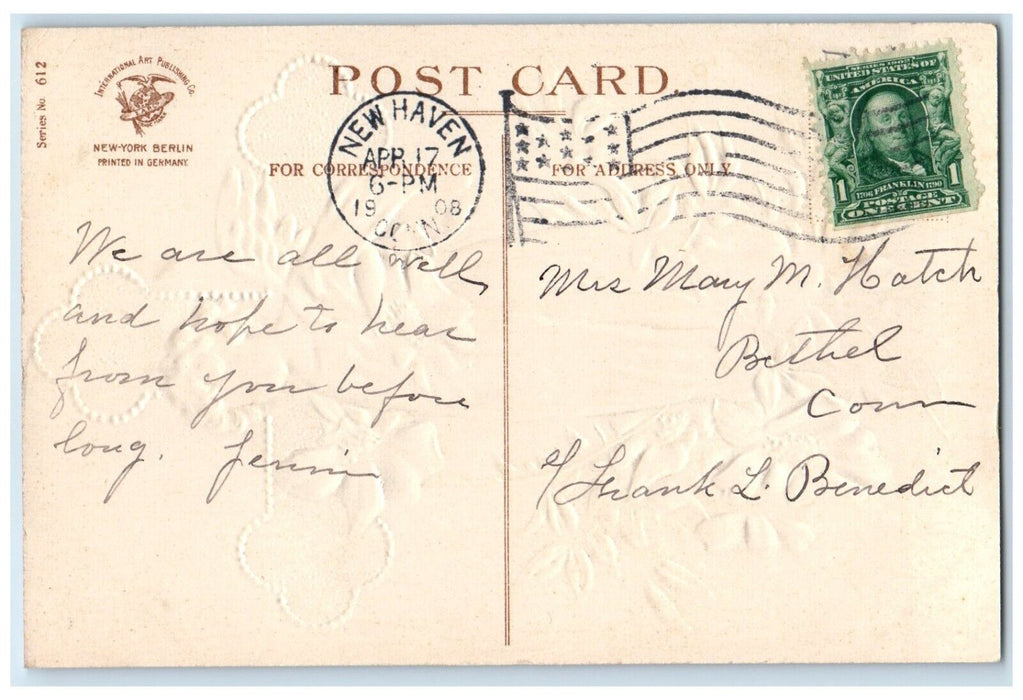 Series No. 612
INTERNATIONAL ART PUBLISHING CO.
NEW-YORK BERLIN
PRINTED IN GERMANY.
POST CARD
FOR CORRESPONDENCE
FOR ADDRESS ONLY
NEW HAVEN
APR 17
6-PM
19 08
CONN.
SERIES 1902
UNITED STATES OF
AMERICA
1706 FRANKLIN 1790
1 POSTAGE 1
ONE CENT
We are all well
and hope to hear
from you before
long. Jennie
Mrs Mary M. Hatch
Bethel
Conn
c/ Frank L. Benedict